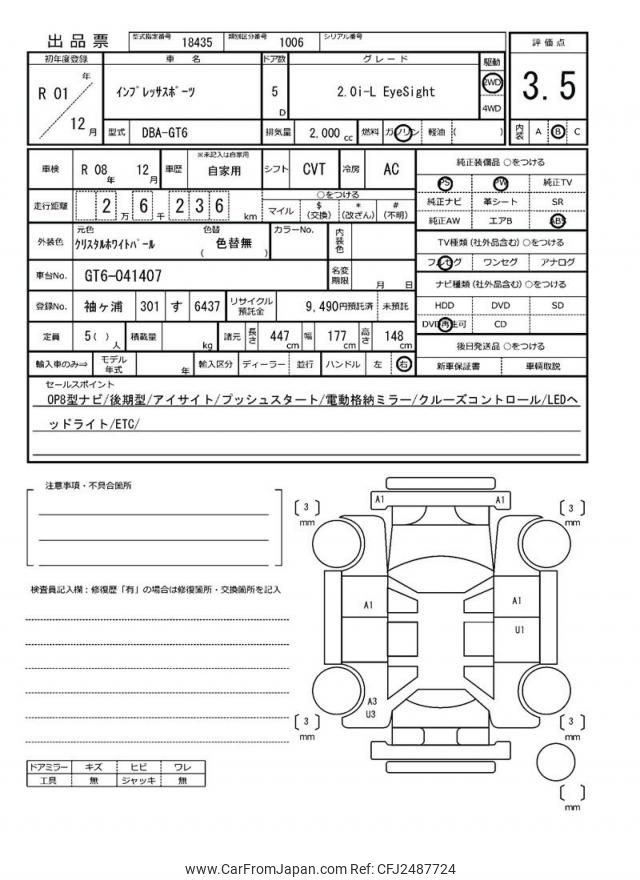 出品票 型式指定番号 18435 類別区分番号 1006 シリアル番号
初年度登録 車 名 ドア数 グレード 駆動 評価点
R 01 年 12 月 ｲﾝﾌﾟﾚｯｻｽﾎﾟｰﾂ 5 D 2.0i-L EyeSight 2WD 4WD 3.5
型式 DBA-GT6 排気量 2,000 cc 燃料 ガソリン 軽油 ( ) 内装 A B C
車検 R 08 年 12 月 車歴 ※未記入は自家用 自家用 シフト CVT 冷房 AC
純正装備品 ○をつける
PS PW 純正TV
純正ナビ 革シート SR
純正AW エアB ABS
走行距離 2 万 6 千 2 3 6 km
○をつける
マイル $ (交換) * (改ざん) # (不明)
外装色 元色 ｸﾘｽﾀﾙﾎﾜｲﾄﾊﾟｰﾙ 色替 ( 色替無 ) カラーNo. 内装色
TV種類 (社外品含む) ○をつける
フルセグ ワンセグ アナログ
車台No. GT6-041407 名変期限 月 日
ナビ種類 (社外品含む) ○をつける
HDD DVD SD
DVD再生可 CD
登録No. 袖ヶ浦 301 す 6437 リサイクル預託金 9,490円預託済 未預託
定員 5( ) 人 積載量 kg 諸元 長さ 447 cm 幅 177 cm 高さ 148 cm
後日発送品 ○をつける
新車保証書 車輌取説
輸入車のみ⇒ モデル年式 年 輸入区分 ディーラー 並行 ハンドル 左 右
セールスポイント
OP8型ナビ/後期型/アイサイト/プッシュスタート/電動格納ミラー/クルーズコントロール/LEDヘ
ッドライト/ETC/
注意事項・不具合箇所
検査員記入欄：修復歴「有」の場合は修復箇所・交換箇所を記入
ドアミラー キズ ヒビ ワレ
工具 無 ジャッキ 無
3 mm A1 A1 3 mm
A1 A1
U1
A3
U3
3 mm 3 mm
mm
www.CarFromJapan.com Ref: CFJ2487724